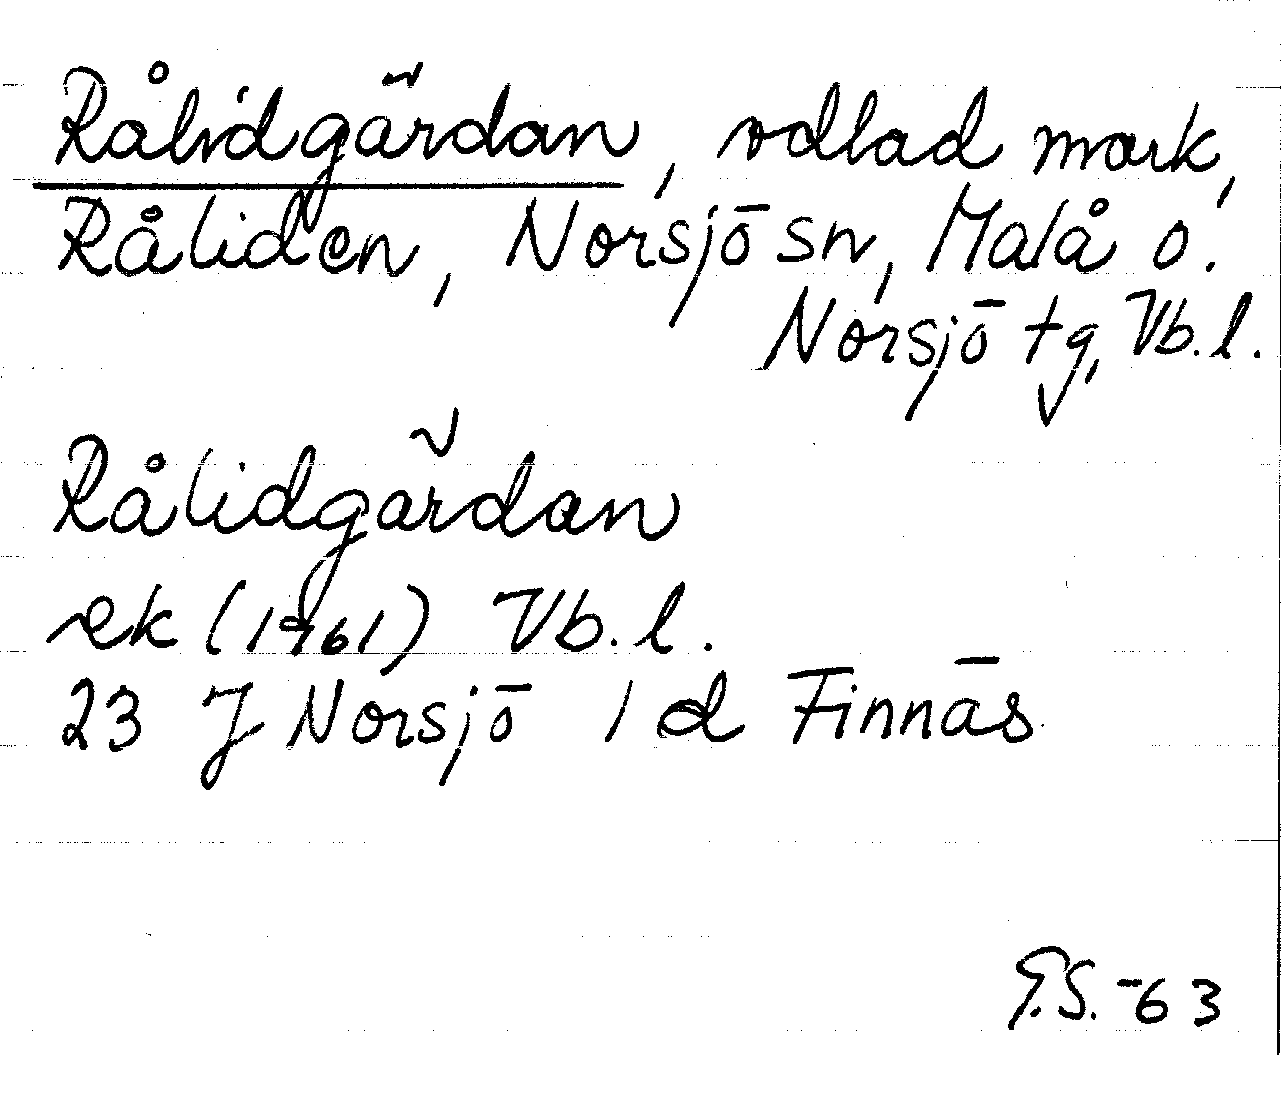 Rålidgärdan, odlad mark,
Råliden, Norsjö sn, Malå o.
Norsjö tg, Vb.l.
Rålidgärdan
ek (1961) Vb.l.
23 J Norsjö 1 d Finnäs
G.S.-63